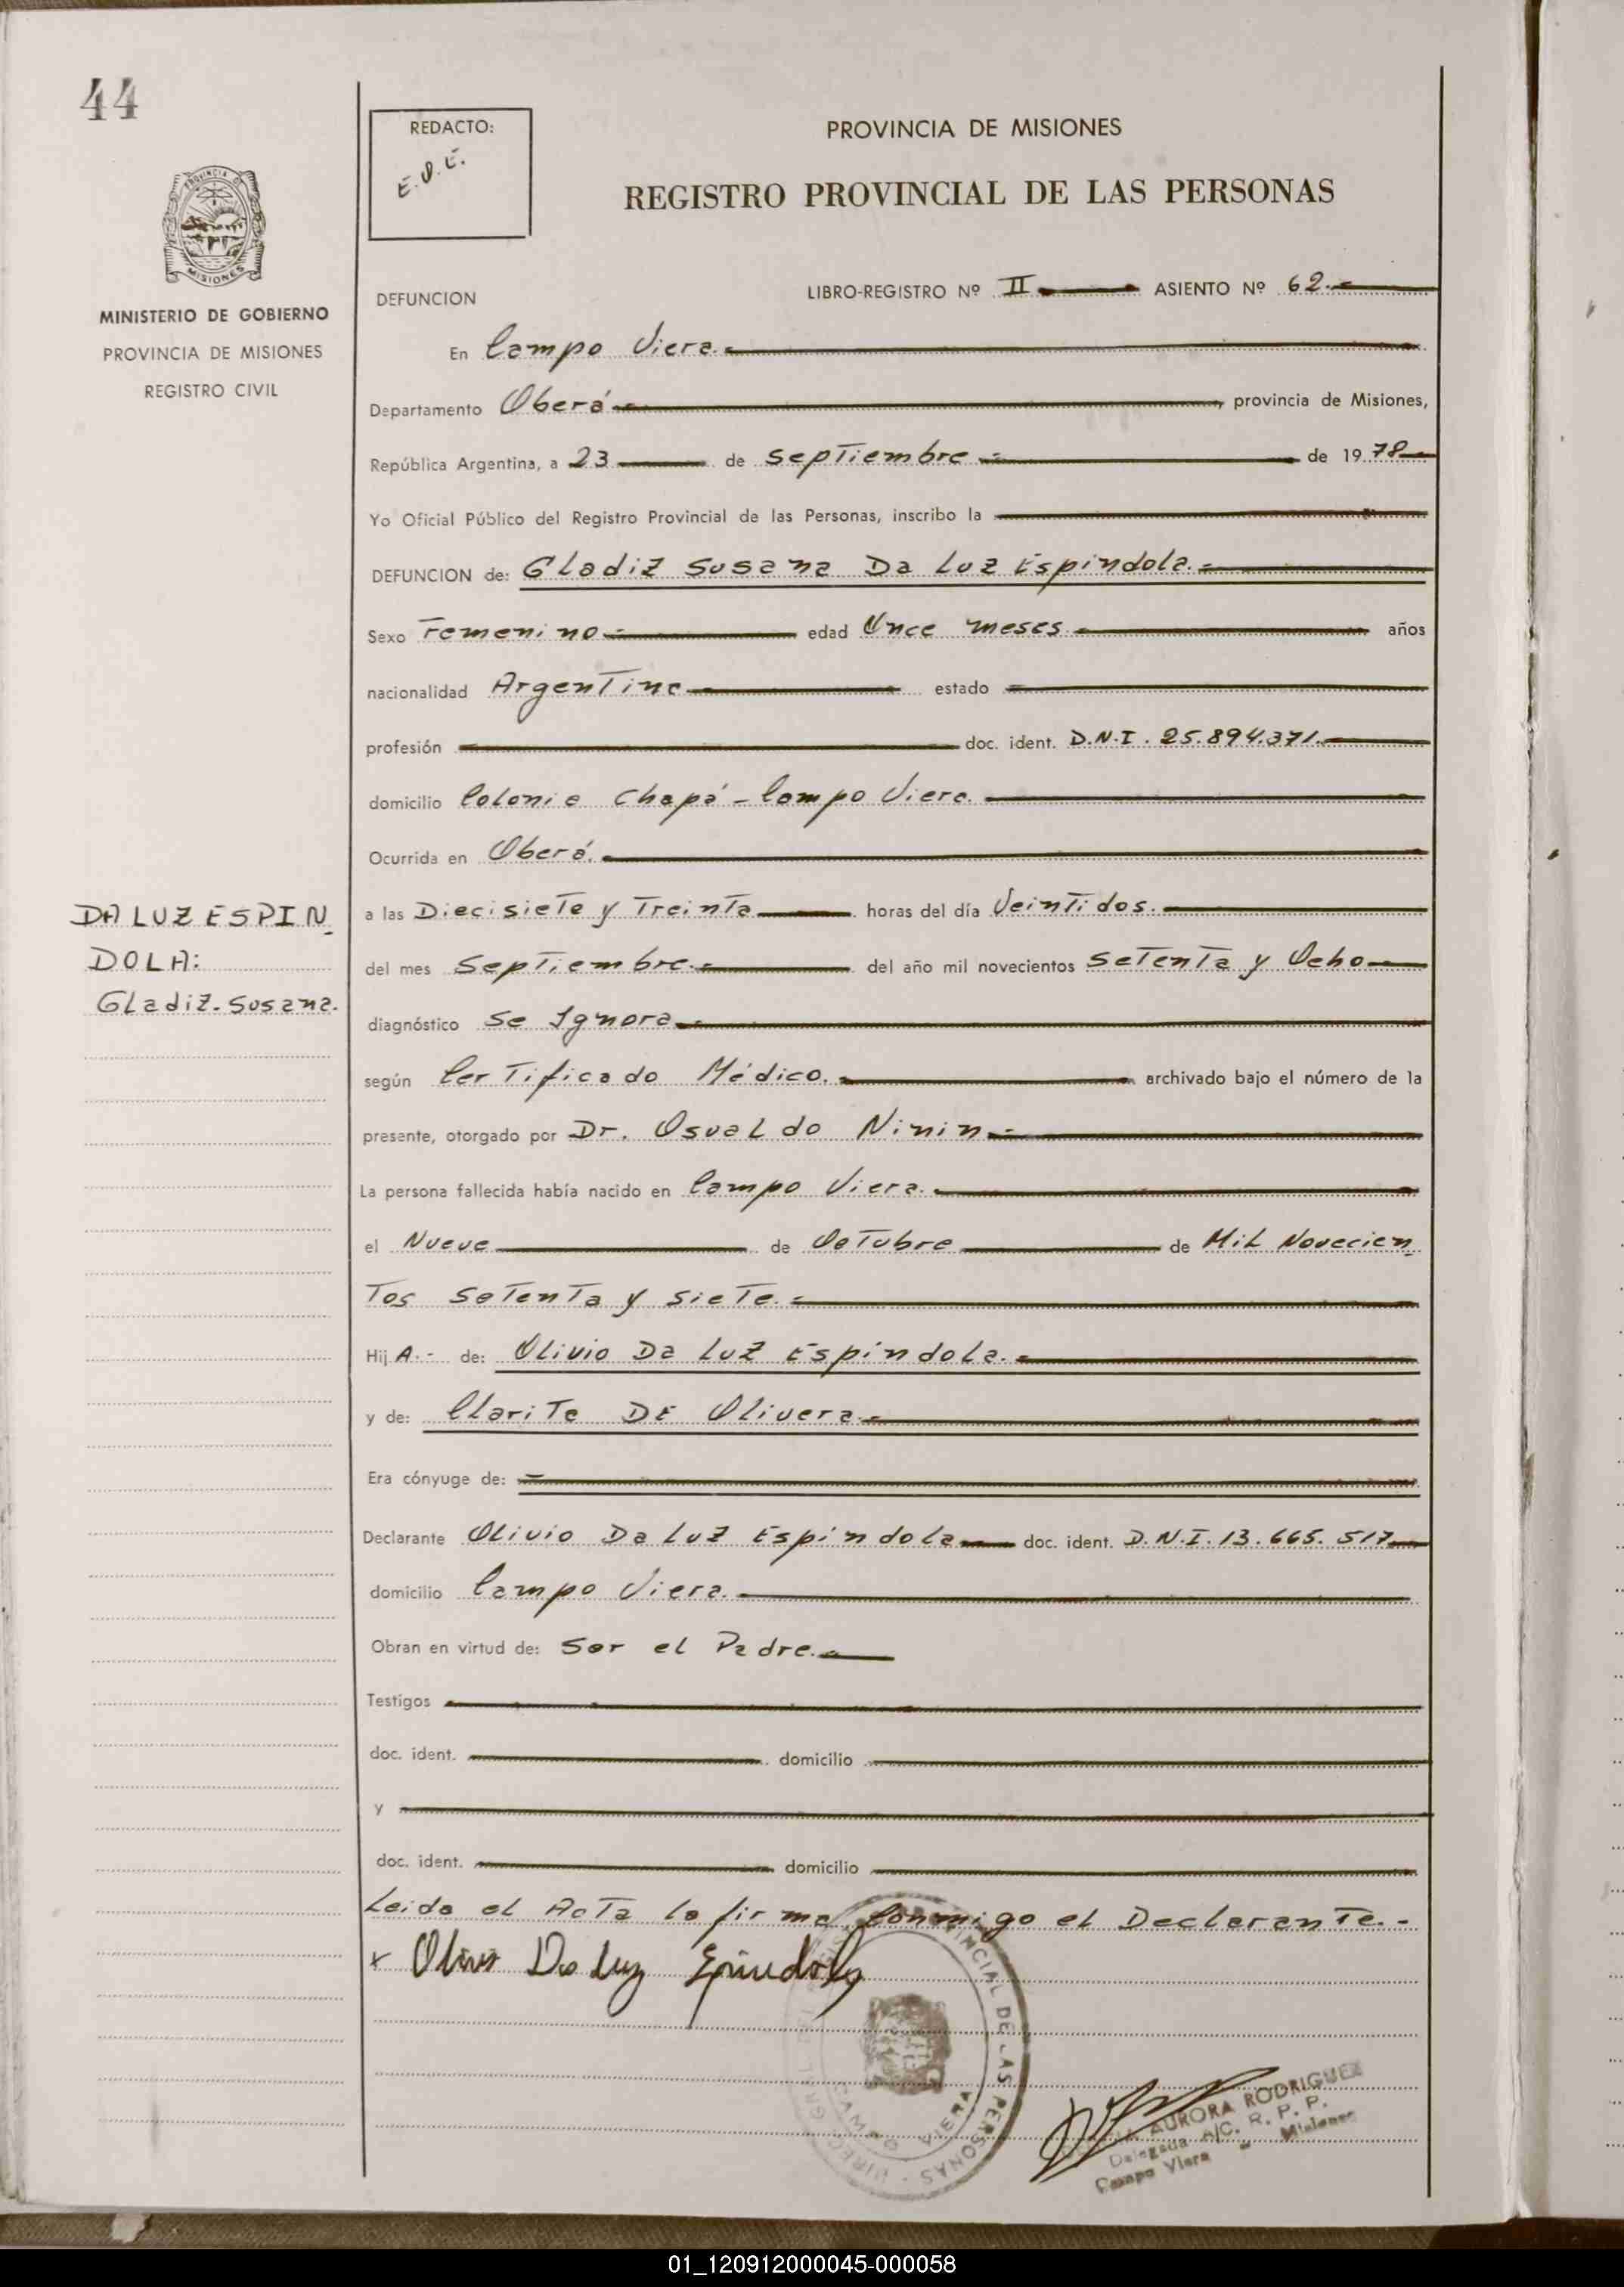 44
REDACTO:
PROVINCIA DE MISIONES
REGISTRO PROVINCIAL DE LAS PERSONAS
PROVINCIA DE
MISIONES
MINISTERIO DE GOBIERNO
PROVINCIA DE MISIONES
REGISTRO CIVIL
DEFUNCION
LIBRO-REGISTRO Nº II ASIENTO Nº 62.-
En Campo Viera.-
Departamento Oberá.- provincia de Misiones,
República Argentina, a 23 de Septiembre.- de 1978
Yo Oficial Público del Registro Provincial de las Personas, inscribo la
DEFUNCION de: Gladiz Susana Da Luz Espindola.-
Sexo Femenino.- edad Once meses.- años
nacionalidad Argentina.- estado
profesión doc. ident. D.N.I. 25.894.371.-
domicilio Colonia Chapá - Campo Viera.
Ocurrida en Oberá.
DA LUZ ESPIN
DOLA:
Gladiz-Susana.
a las Diecisiete y Treinta horas del día Veintidos.-
del mes Septiembre.- del año mil novecientos Setenta y Ocho
diagnóstico Se Ignora.-
según Certificado Médico.- archivado bajo el número de la
presente, otorgado por Dr. Osvaldo Ninin.-
La persona fallecida había nacido en Campo Viera.-
el Nueve de Octubre de Mil Novecien
Tos Setenta y Siete.-
Hij A.- de: Olivio Da Luz Espindola.-
y de: Clarite DE Olivera.-
Era cónyuge de:
Declarante Olivio Da Luz Espindola doc. ident. D.N.I. 13.665.517
domicilio Campo Viera.-
Obran en virtud de: Ser el Padre.-
Testigos
doc. ident. domicilio
y
doc. ident. domicilio
Leida el Acta la firma conmigo el Declarante.-
x Olivio Da Luz Espindola
PROVINCIAL DE LAS PERSONAS
CAMPO VIERA
AURORA RODRIGUEZ
Delegada A/C. R. P. P.
Campo Viera - Misiones
01_120912000045-000058